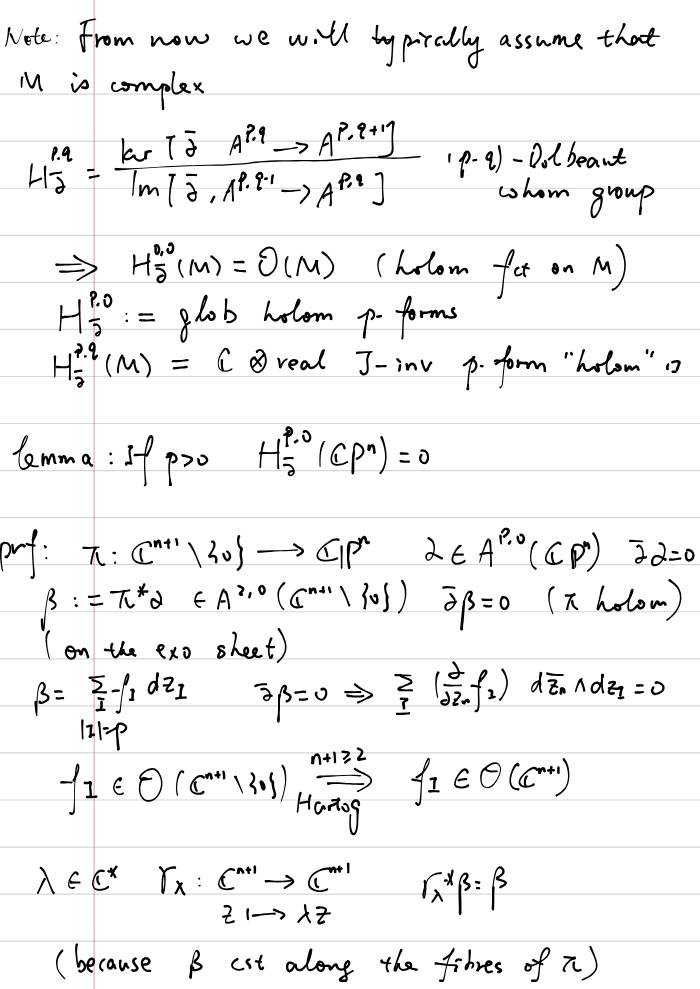 Note: From now we will typically assume that
M is complex
H_∂̄^{p,q} = ker [∂̄ A^{p,q} → A^{p,q+1}] / Im [∂̄, A^{p,q-1} → A^{p,q}] (p-q) - Dolbeaut
cohom group
⇒ H_∂̄^{0,0}(M) = O(M) (holom fct on M)
H_∂̄^{p,0} := glob holom p-forms
H_∂̄^{p,q}(M) = ℂ ⊗ real J-inv p-form "holom"
lemma: If p>0 H_∂̄^{p,0}(ℂPⁿ) = 0
prf: π: ℂ^{n+1} \ {0} → ℂPⁿ α ∈ A^{p,0}(ℂPⁿ) ∂̄α=0
β := π*α ∈ A^{p,0}(ℂ^{n+1} \ {0}) ∂̄β=0 (π holom)
(on the exo sheet)
β = Σ_I f_I dz_I ∂̄β=0 ⇒ Σ_I (∂/∂z̄_n f_I) dz̄_n ∧ dz_I = 0
|I|=p
f_I ∈ O(ℂ^{n+1} \ {0}) ⇒ f_I ∈ O(ℂ^{n+1})
n+1≥2
Hartog
λ ∈ ℂ* r_λ: ℂ^{n+1} → ℂ^{n+1} r_λ*β = β
z ↦ λz
(because β cst along the fibres of π)